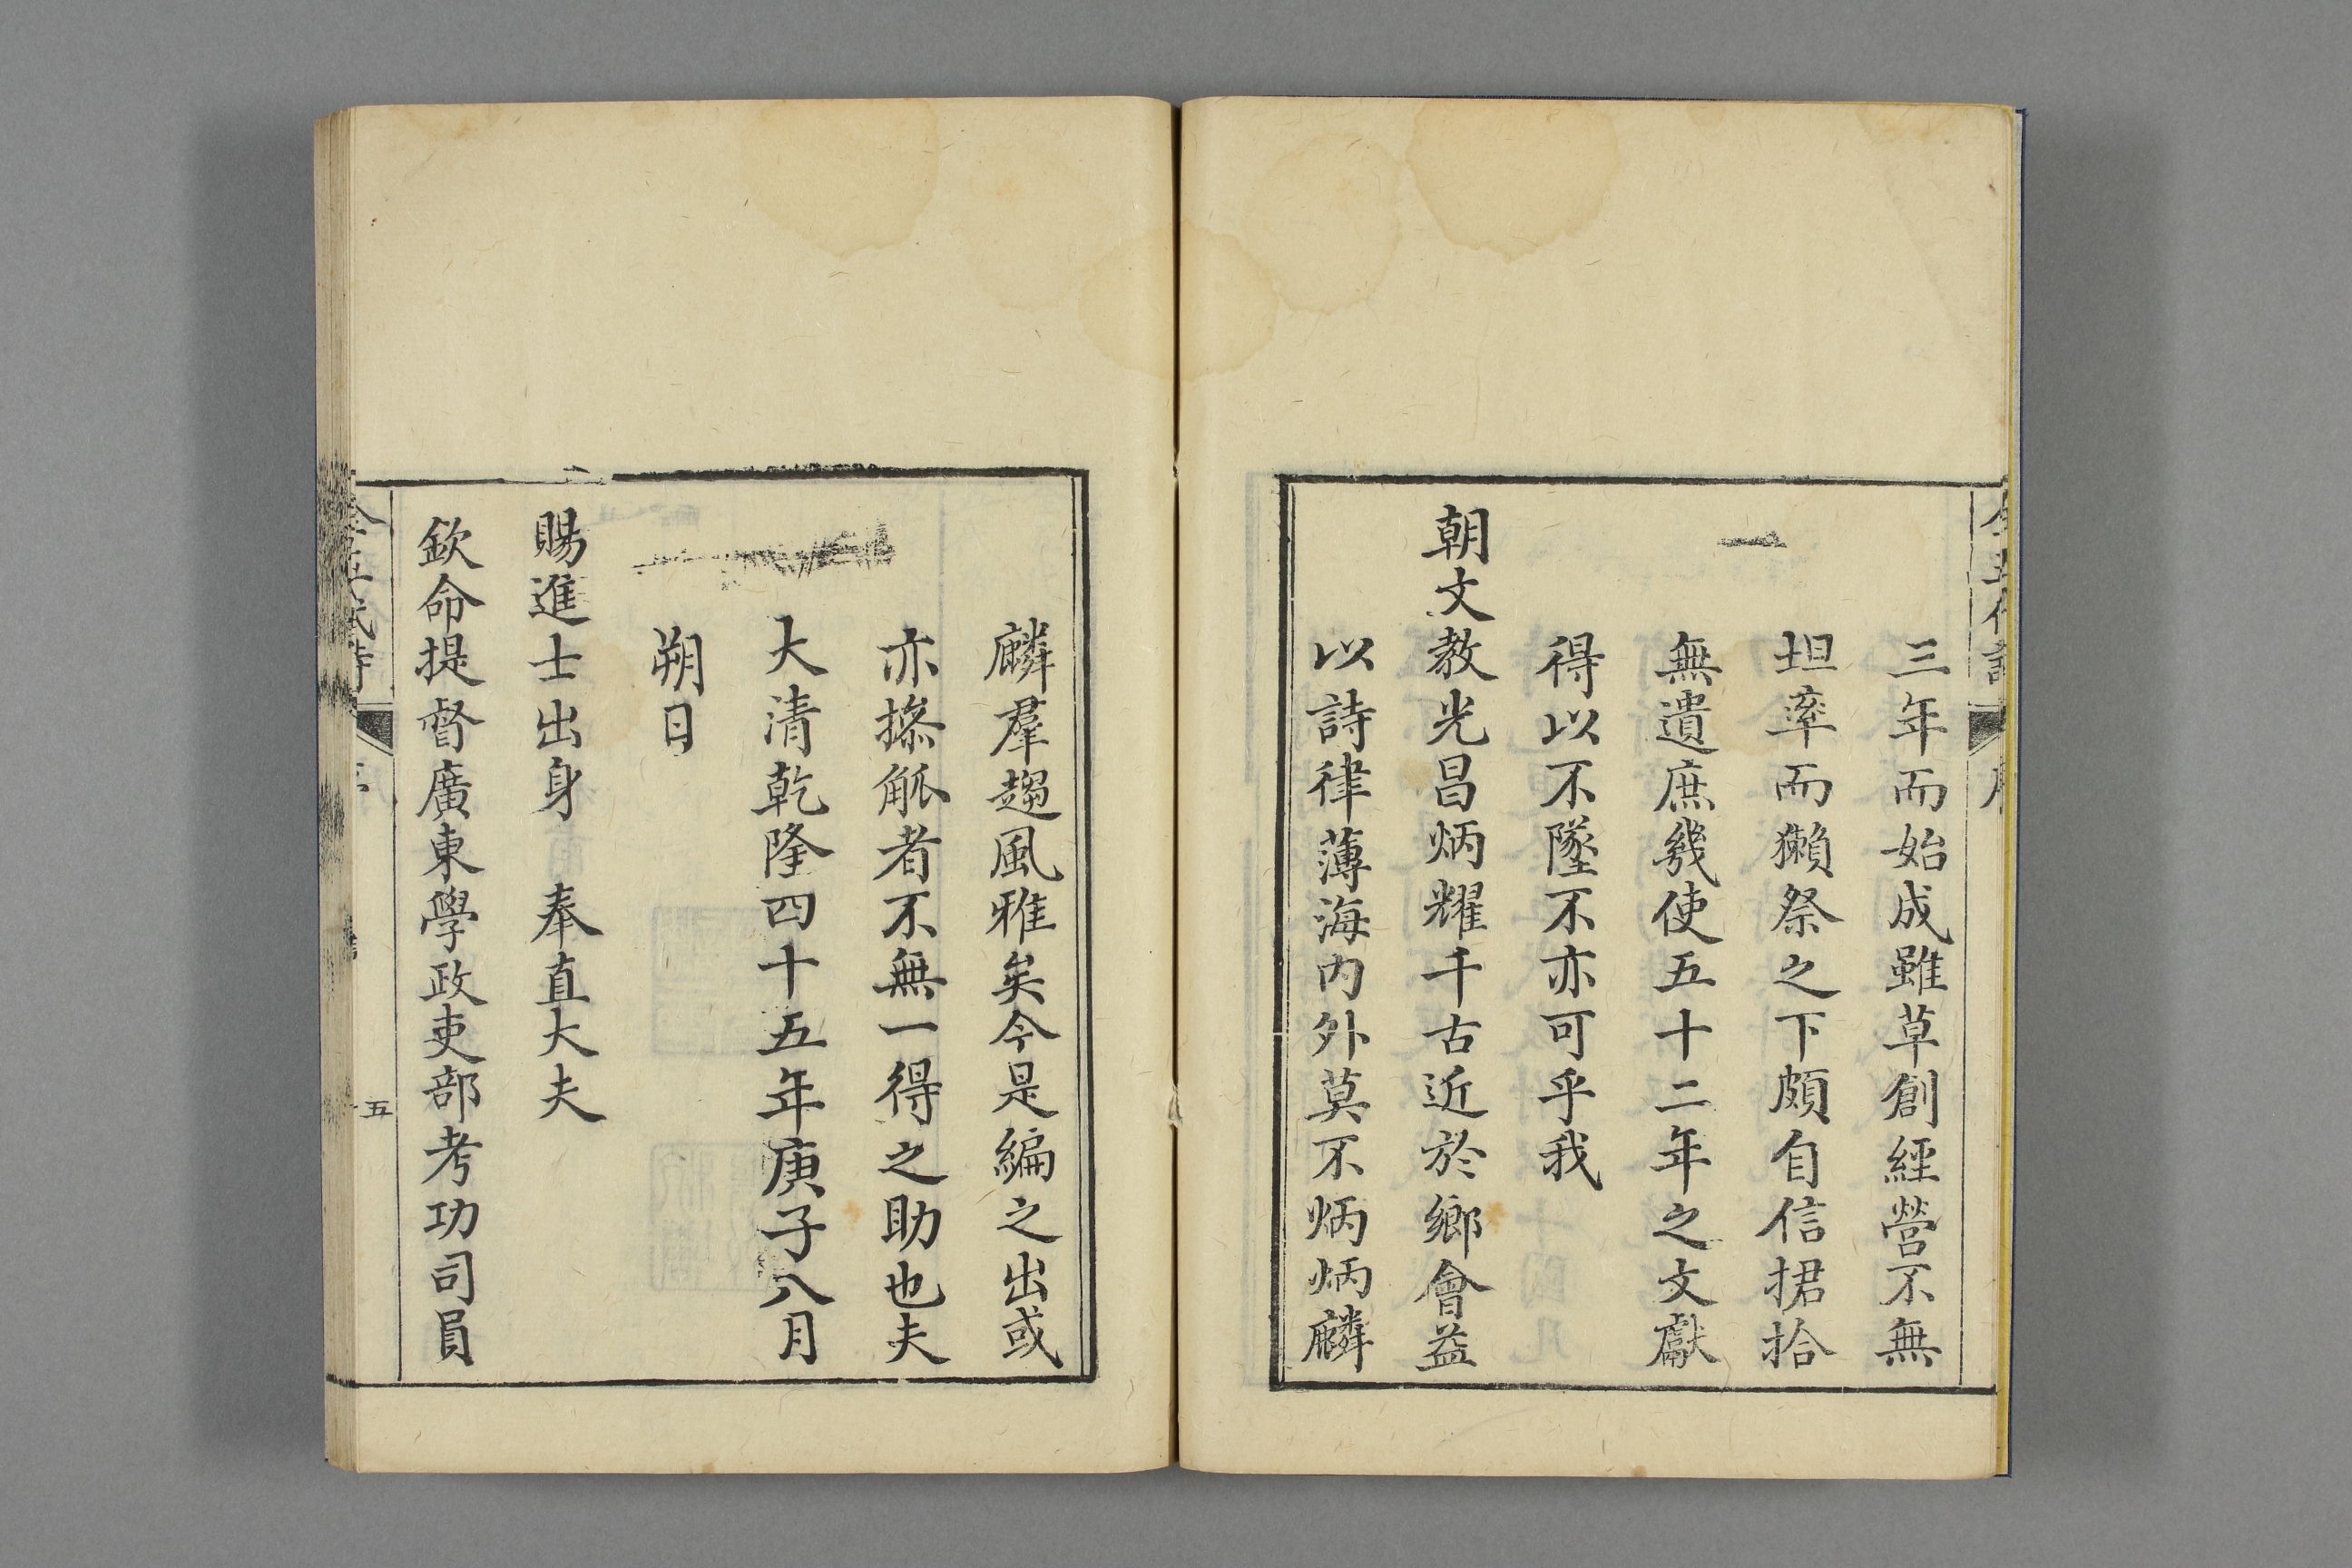 三年而始成雖草創經營不無
坦率而獺祭之下頗自信捃拾
無遺庶幾使五十二年之文獻
得以不墜不亦可乎我
朝文教光昌炳耀千古近於鄉會益
以詩律薄海內外莫不炳炳麟
麟羣趨風雅矣今是編之出或
亦操觚者不無一得之助也夫
大清乾隆四十五年庚子八月
朔日
賜進士出身　奉直大夫
欽命提督廣東學政吏部考功司員
五